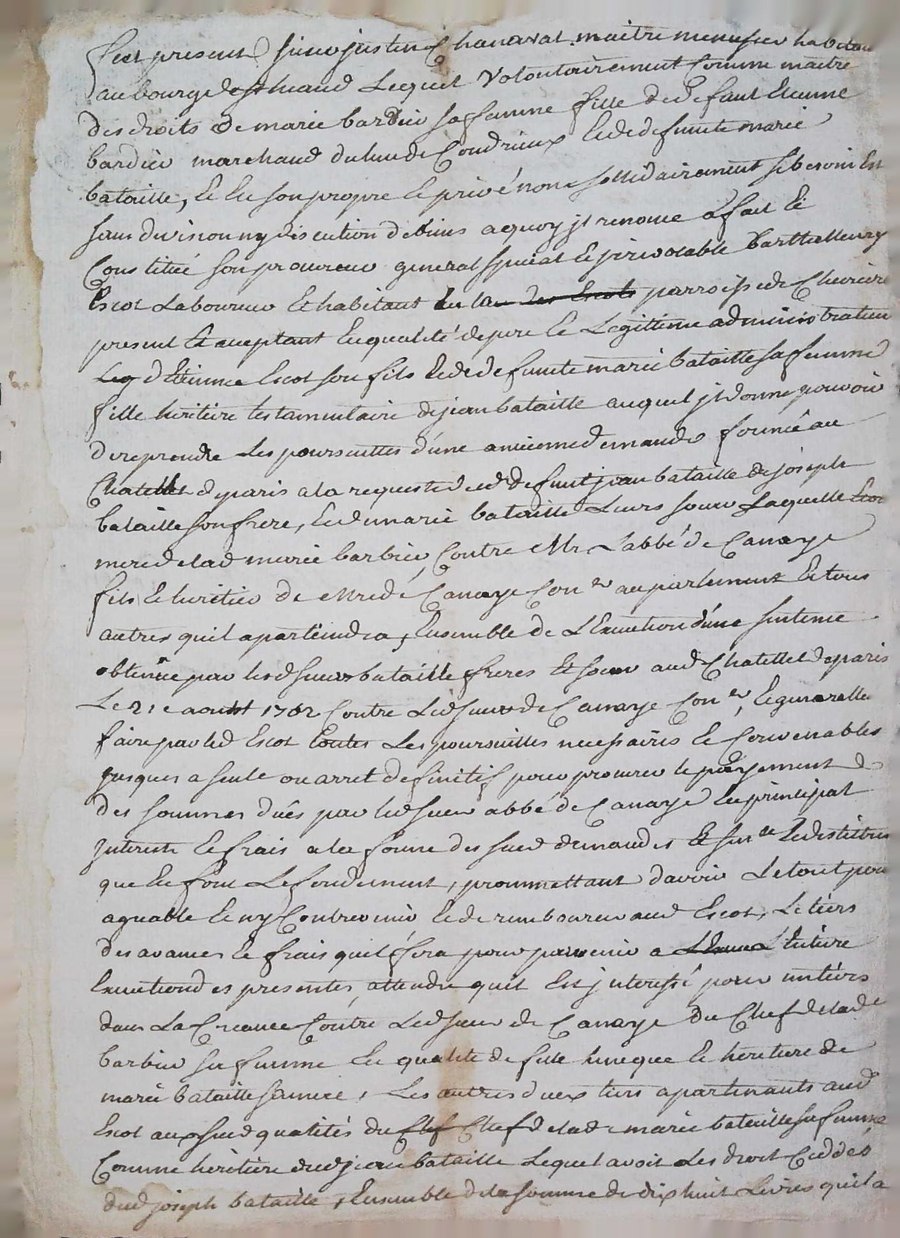 fut present sieur justin Chanavat maitre menusier habitan
au bourg de st heand Lequel Volontairement comme maitre
des droits de marie bardier sa femme fille de defunt Etienne
bardier marchand du lieu de Condrieux Et de defunte marie
bataille, Et En son propre Et privé nom sollidairement si besoin Est
sans division ny discution de biens a quoy jl renonce a fait Et
Constitué son procureur general special Et jrrevocable Barthellemy
Escot Laboureur Et habitant En la parroisse de Chevriere
present Et aceptant En qualité de pere Et Legitime administrateur
d'Etienne Escot son fils Et de defunte marie bataille sa femme
fille heritiere testamentaire de jean bataille auquel jl donne pouvoir
de reprendre Les poursuittes d'une ancienne demande formée au
Chatellet de paris a la requeste dud defunt jean bataille de joseph
bataille son frere, Et de marie bataille Leurs soeur Laquelle Etoit
mere de lad marie barbier, Contre Mr L'abbé de Canaye
fils Et heritier de Mre de Canaye Con er au parlement Et tous
autres qu'il apartiendra, Ensemble de L'Execution d'une sentence
obtenue par lesd sieurs bataille freres Et soeur aud Chatellet de paris
Le 21e aoust 1702 Contre Led sieur de Canaye Con er, Et generalle
faire par led Escot toutes Les poursuittes necessaires Et Convenables
jusques a sentce ou arret definitif pour procurer le payement
des sommes dues par led sieur abbé de Canaye En principal
jnterests Et frais a la forme des sus d demandes Et sen ce Et des tittres
que En font Le fondement, prommettant d'avoir Le tout pour
agreable Et ny Contrevenir Et de rembourcer aud Escot, Le tiers
des avances Et frais quil fera pour parvenir a L'entiere
Execution des presentes, attendu quil Est jnteressé pour un tiers
dans La Creance Contre Led sieur de Canaye du Chef de lade
barbier sa femme En qualité de fille unique Et heritiere de
marie bataille sa mere, Les autres deux tiers apartenants aud
Escot aux sus d qualités du Chef de lade marie bataille sa femme
Comme heritiere dud jean bataille Lequel avoit Les droit Ceddés
dud joseph bataille, Ensemble de la somme de dix huit Livres quil a